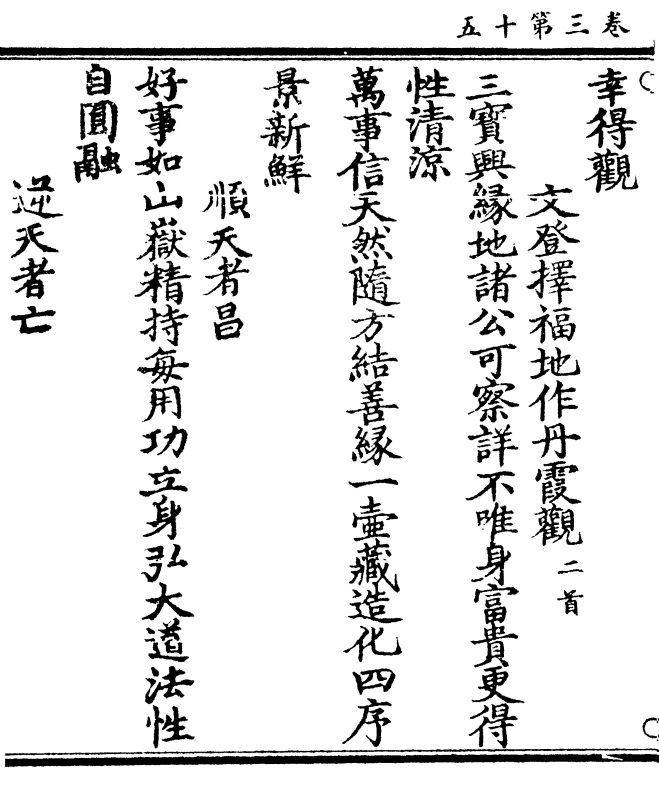 卷三第十五
幸得觀
文登擇福地作丹霞觀二首
三寶興緣地諸公可察詳不唯身富貴更得
性清涼
萬事信天然隨方結善緣一壷藏造化四序
景新鮮
順天者昌
好事如山嶽精持每用功立身弘大道法性
自圓融
逆天者亡